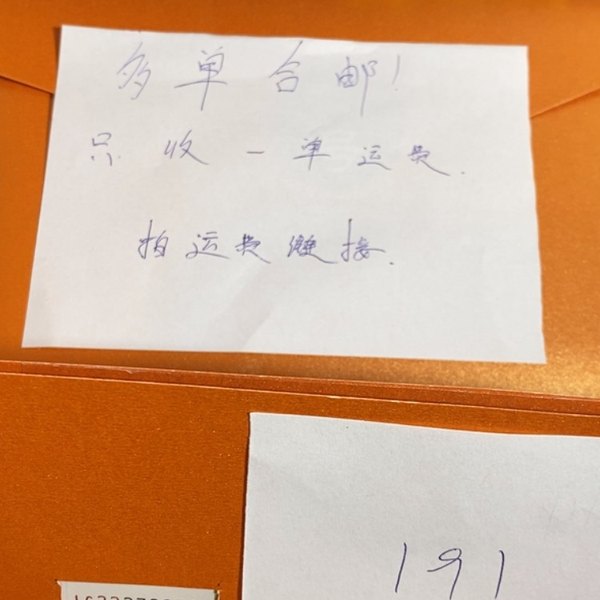 多单合邮!
只收一单运费.
拍运费链接.
191